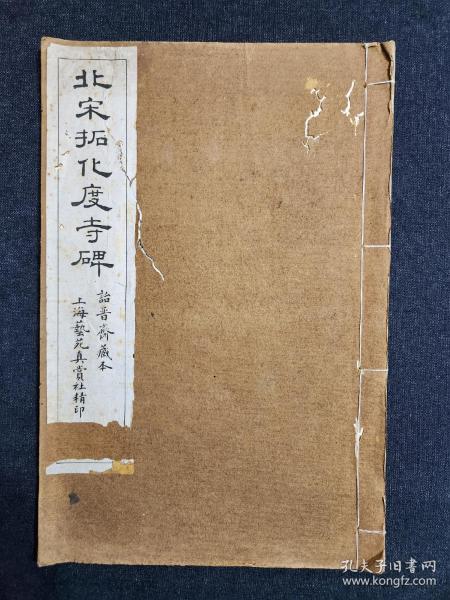 北宋拓化度寺碑
詒晉齋藏本
上海藝苑真賞社精印
孔夫子旧书网
www.kongfz.com